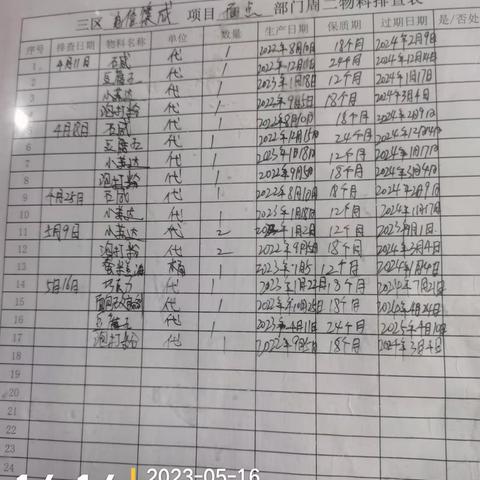 三区 项目 面点 部门周二物料排查表
序号 排查日期 物料名称 单位 数量 生产日期 保质期 过期日期 是/否处
1 4月11日 代 1 2022年8月10日 18个月 2024年2月9日
2 代 1 2022年12月15日 24个月 2024年12月14日
3 小苏达 代 1 2023年1月18日 12个月 2024年1月17日
4 泡打粉 代 1 2022年9月5日 18个月 2024年3月4日
5 4月18日 代 1 2022年8月10日 18个月 2024年2月9日
6 代 1 2022年12月15日 24个月 2024年12月14日
7 小苏达 代 1 2023年1月18日 12个月 2024年1月17日
8 泡打粉 代 1 2022年9月5日 18个月 2024年3月4日
9 4月25日 代 1 2022年8月10日 18个月 2024年2月9日
10 小苏达 代 1 2023年1月18日 12个月 2024年1月17日
11 5月9日 小苏达 代 2 12个月
12 泡打粉 代 2 2022年9月5日 18个月 2024年3月4日
13 桶 1 2023年1月5 12个月 2024年1月4日
14 5月16日 巧克力 代 1 2023年1月22日 18个月 2024年7月21日
15 代 1 2022年10月25日 18个月 2024年4月24日
16 代 1 2023年4月11日 24个月 2025年4月10日
17 泡打粉 代 1 2022年9月5日 18个月 2024年3月4日
18
19
20
21
22
23
24
2023-05-16